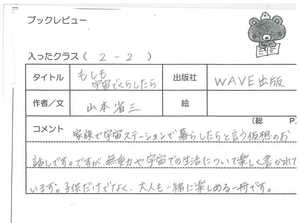 ブックレビュー
入ったクラス( 2 - 2 )
タイトル もしも宇宙でくらしたら 出版社 WAVE出版
作者/文 山本省三 絵
(総 P
コメント 家族で宇宙ステーションで暮らしたらと言う仮想のお
話しです。ですが、無重力や宇宙での生活について楽しく書かれて
います。子供だけでなく、大人も一緒に楽しめる一冊です。